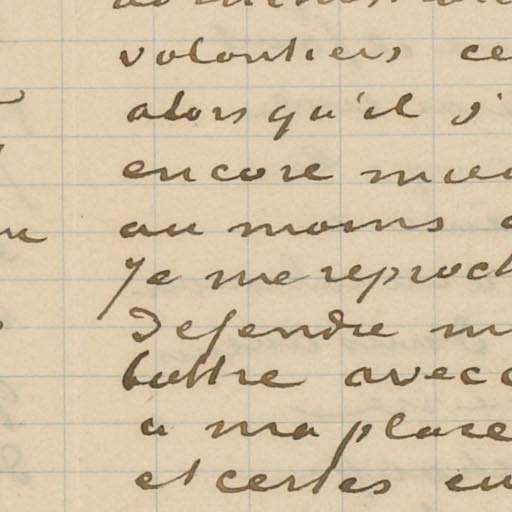 volontiers ce
alors qu'il s'
encore mieu
au moins
Je me reproch
Defendre m
battre avec
a ma place
et certes en